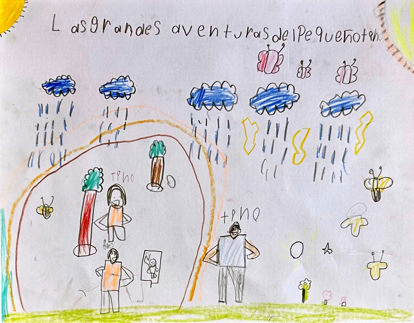 Las grandes aventuras del Pequeño ton
tono
tono